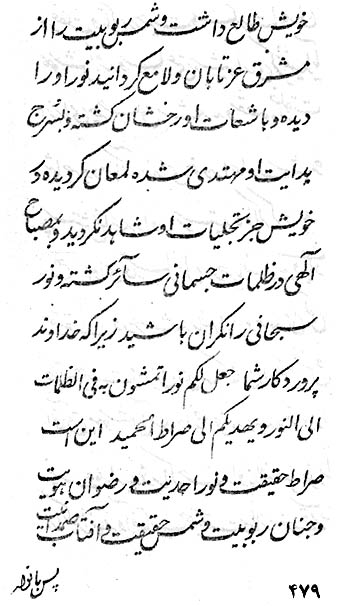 خویش طالع داشت و شمس ربوبیت را از
مشرق عز تابان و لامع کردانید نور او را
دیده و باشعات او رخشان کشته و بسرج
هدایت او مهتدی شده لمعان کردیده در
خویش جز تجلیات او شاهد نکردید و بمصباح
آلهی در ظلمات جسمانی سآئر کشته و نور
سبحانی را نکران باشید زیرا که خداوند
پروردکار شما جعل لکم نورا تمشون به فی الظلمات
الی النور و یهدیکم الی صراط الحمید این است
صراط حقیقت و نور احدیت و رضوان هویت
و جنان ربوبیت و شمس حقیقت و آفتاب صمدانیت
پس بانواله
۴۷۹